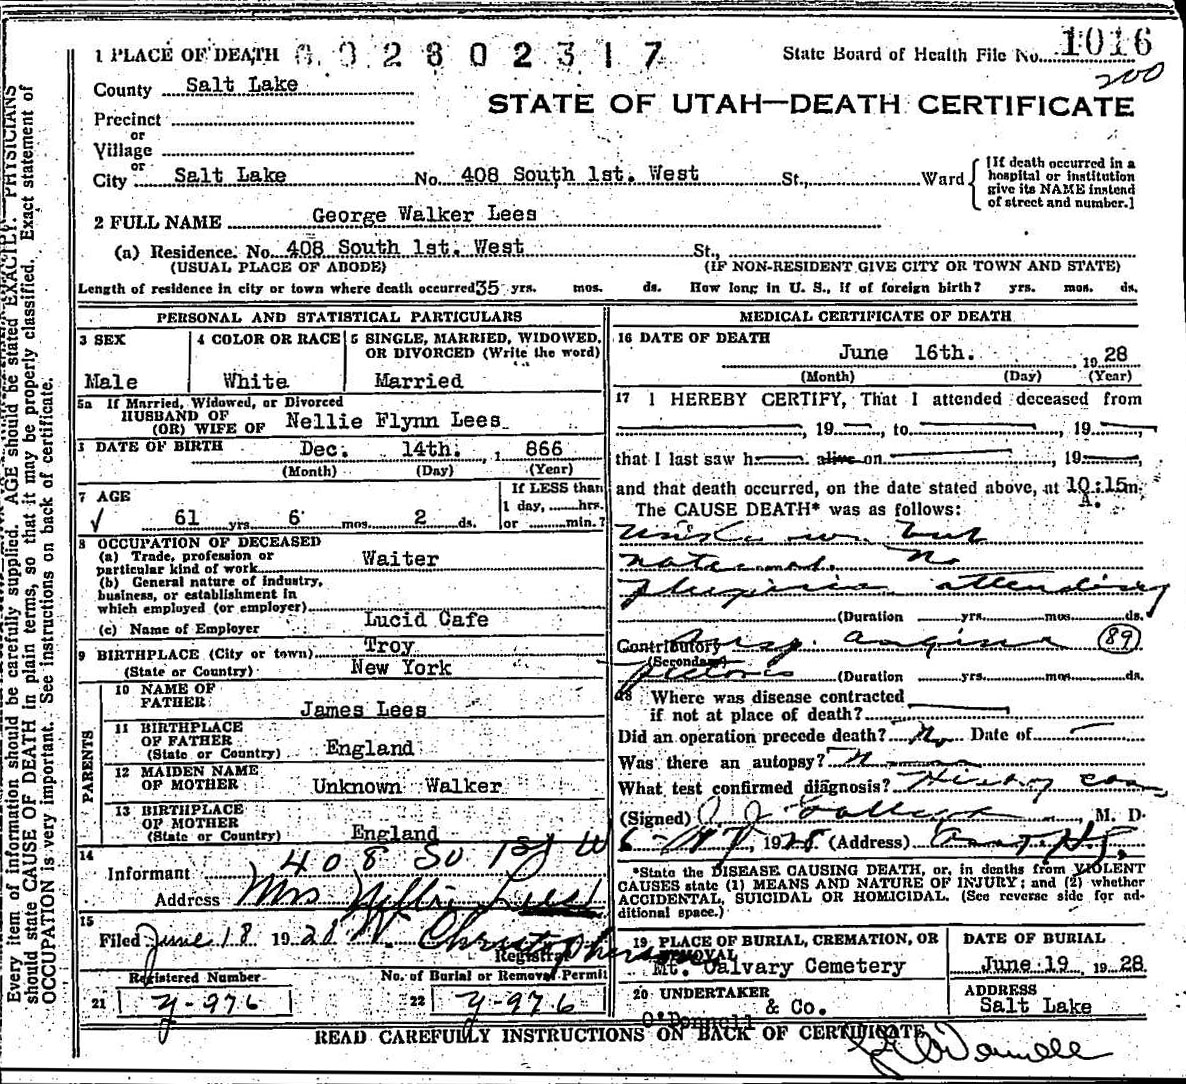 1 PLACE OF DEATH 002802317 State Board of Health File No. 1016
200
County Salt Lake
STATE OF UTAH—DEATH CERTIFICATE
Precinct
or
Village
or
City Salt Lake No. 408 South 1st. West St., Ward
[If death occurred in a
hospital or institution
give its NAME instead
of street and number.]
2 FULL NAME George Walker Lees
(a) Residence. No. 408 South 1st. West St.,
(USUAL PLACE OF ABODE) (IF NON-RESIDENT GIVE CITY OR TOWN AND STATE)
Length of residence in city or town where death occurred 35 yrs. mos. ds. How long in U. S., if of foreign birth? yrs. mos. ds.
PERSONAL AND STATISTICAL PARTICULARS
3 SEX 4 COLOR OR RACE 5 SINGLE, MARRIED, WIDOWED,
OR DIVORCED (Write the word)
Male White Married
5a If Married, Widowed, or Divorced
HUSBAND OF
(OR) WIFE OF Nellie Flynn Lees
DATE OF BIRTH Dec. 14th. , 1 866
(Month) (Day) (Year)
7 AGE If LESS than
1 day, hrs.
61 yrs. 6 mos. 2 ds. or min.?
8 OCCUPATION OF DECEASED
(a) Trade, profession or
particular kind of work Waiter
(b) General nature of industry,
business, or establishment in
which employed (or employer)
(c) Name of Employer Lucid Cafe
9 BIRTHPLACE (City or town) Troy
(State or Country) New York
PARENTS
10 NAME OF
FATHER James Lees
11 BIRTHPLACE
OF FATHER
(State or Country) England
12 MAIDEN NAME
OF MOTHER Unknown Walker
13 BIRTHPLACE
OF MOTHER
(State or Country) England
14 408 So 1st W
Informant
Address Mrs Nellie Lees
15
Filed June 18 1928 W. Christopherson
Registrar
Registered Number No. of Burial or Removal Permit
21 y-976 22 y-976
MEDICAL CERTIFICATE OF DEATH
16 DATE OF DEATH
June 16th. 1928
(Month) (Day) (Year)
17 I HEREBY CERTIFY, That I attended deceased from
, 19 , to , 19 ,
that I last saw h alive on , 19 ,
and that death occurred, on the date stated above, at 10:15 m.
A.
The CAUSE DEATH* was as follows:
but
natural. No
physician attending
(Duration yrs. mos. ds.
Contributory angina (89)
(Secondary)
Pectoris (Duration yrs. mos. ds.
18 Where was disease contracted
if not at place of death?
Did an operation precede death? No Date of
Was there an autopsy?
What test confirmed diagnosis? History
(Signed) M. D.
, 1928 (Address)
*State the DISEASE CAUSING DEATH, or, in deaths from VIOLENT
CAUSES state (1) MEANS AND NATURE OF INJURY; and (2) whether
ACCIDENTAL, SUICIDAL OR HOMICIDAL. (See reverse side for ad-
ditional space.)
19 PLACE OF BURIAL, CREMATION, OR
REMOVAL DATE OF BURIAL
Mt. Calvary Cemetery June 19 1928
20 UNDERTAKER ADDRESS
O'Donnell & Co. Salt Lake
READ CAREFULLY INSTRUCTIONS ON BACK OF CERTIFICATE
O'Donnell
Every item of information should be carefully supplied. AGE should be stated EXACTLY. PHYSICIANS
should state CAUSE OF DEATH in plain terms, so that it may be properly classified. Exact statement of
OCCUPATION is very important. See instructions on back of certificate.